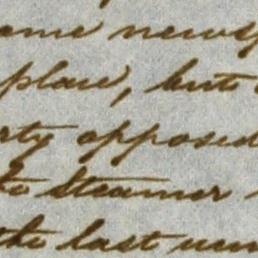 ame newsp
place, but
rty opposed
the steamer
the last num